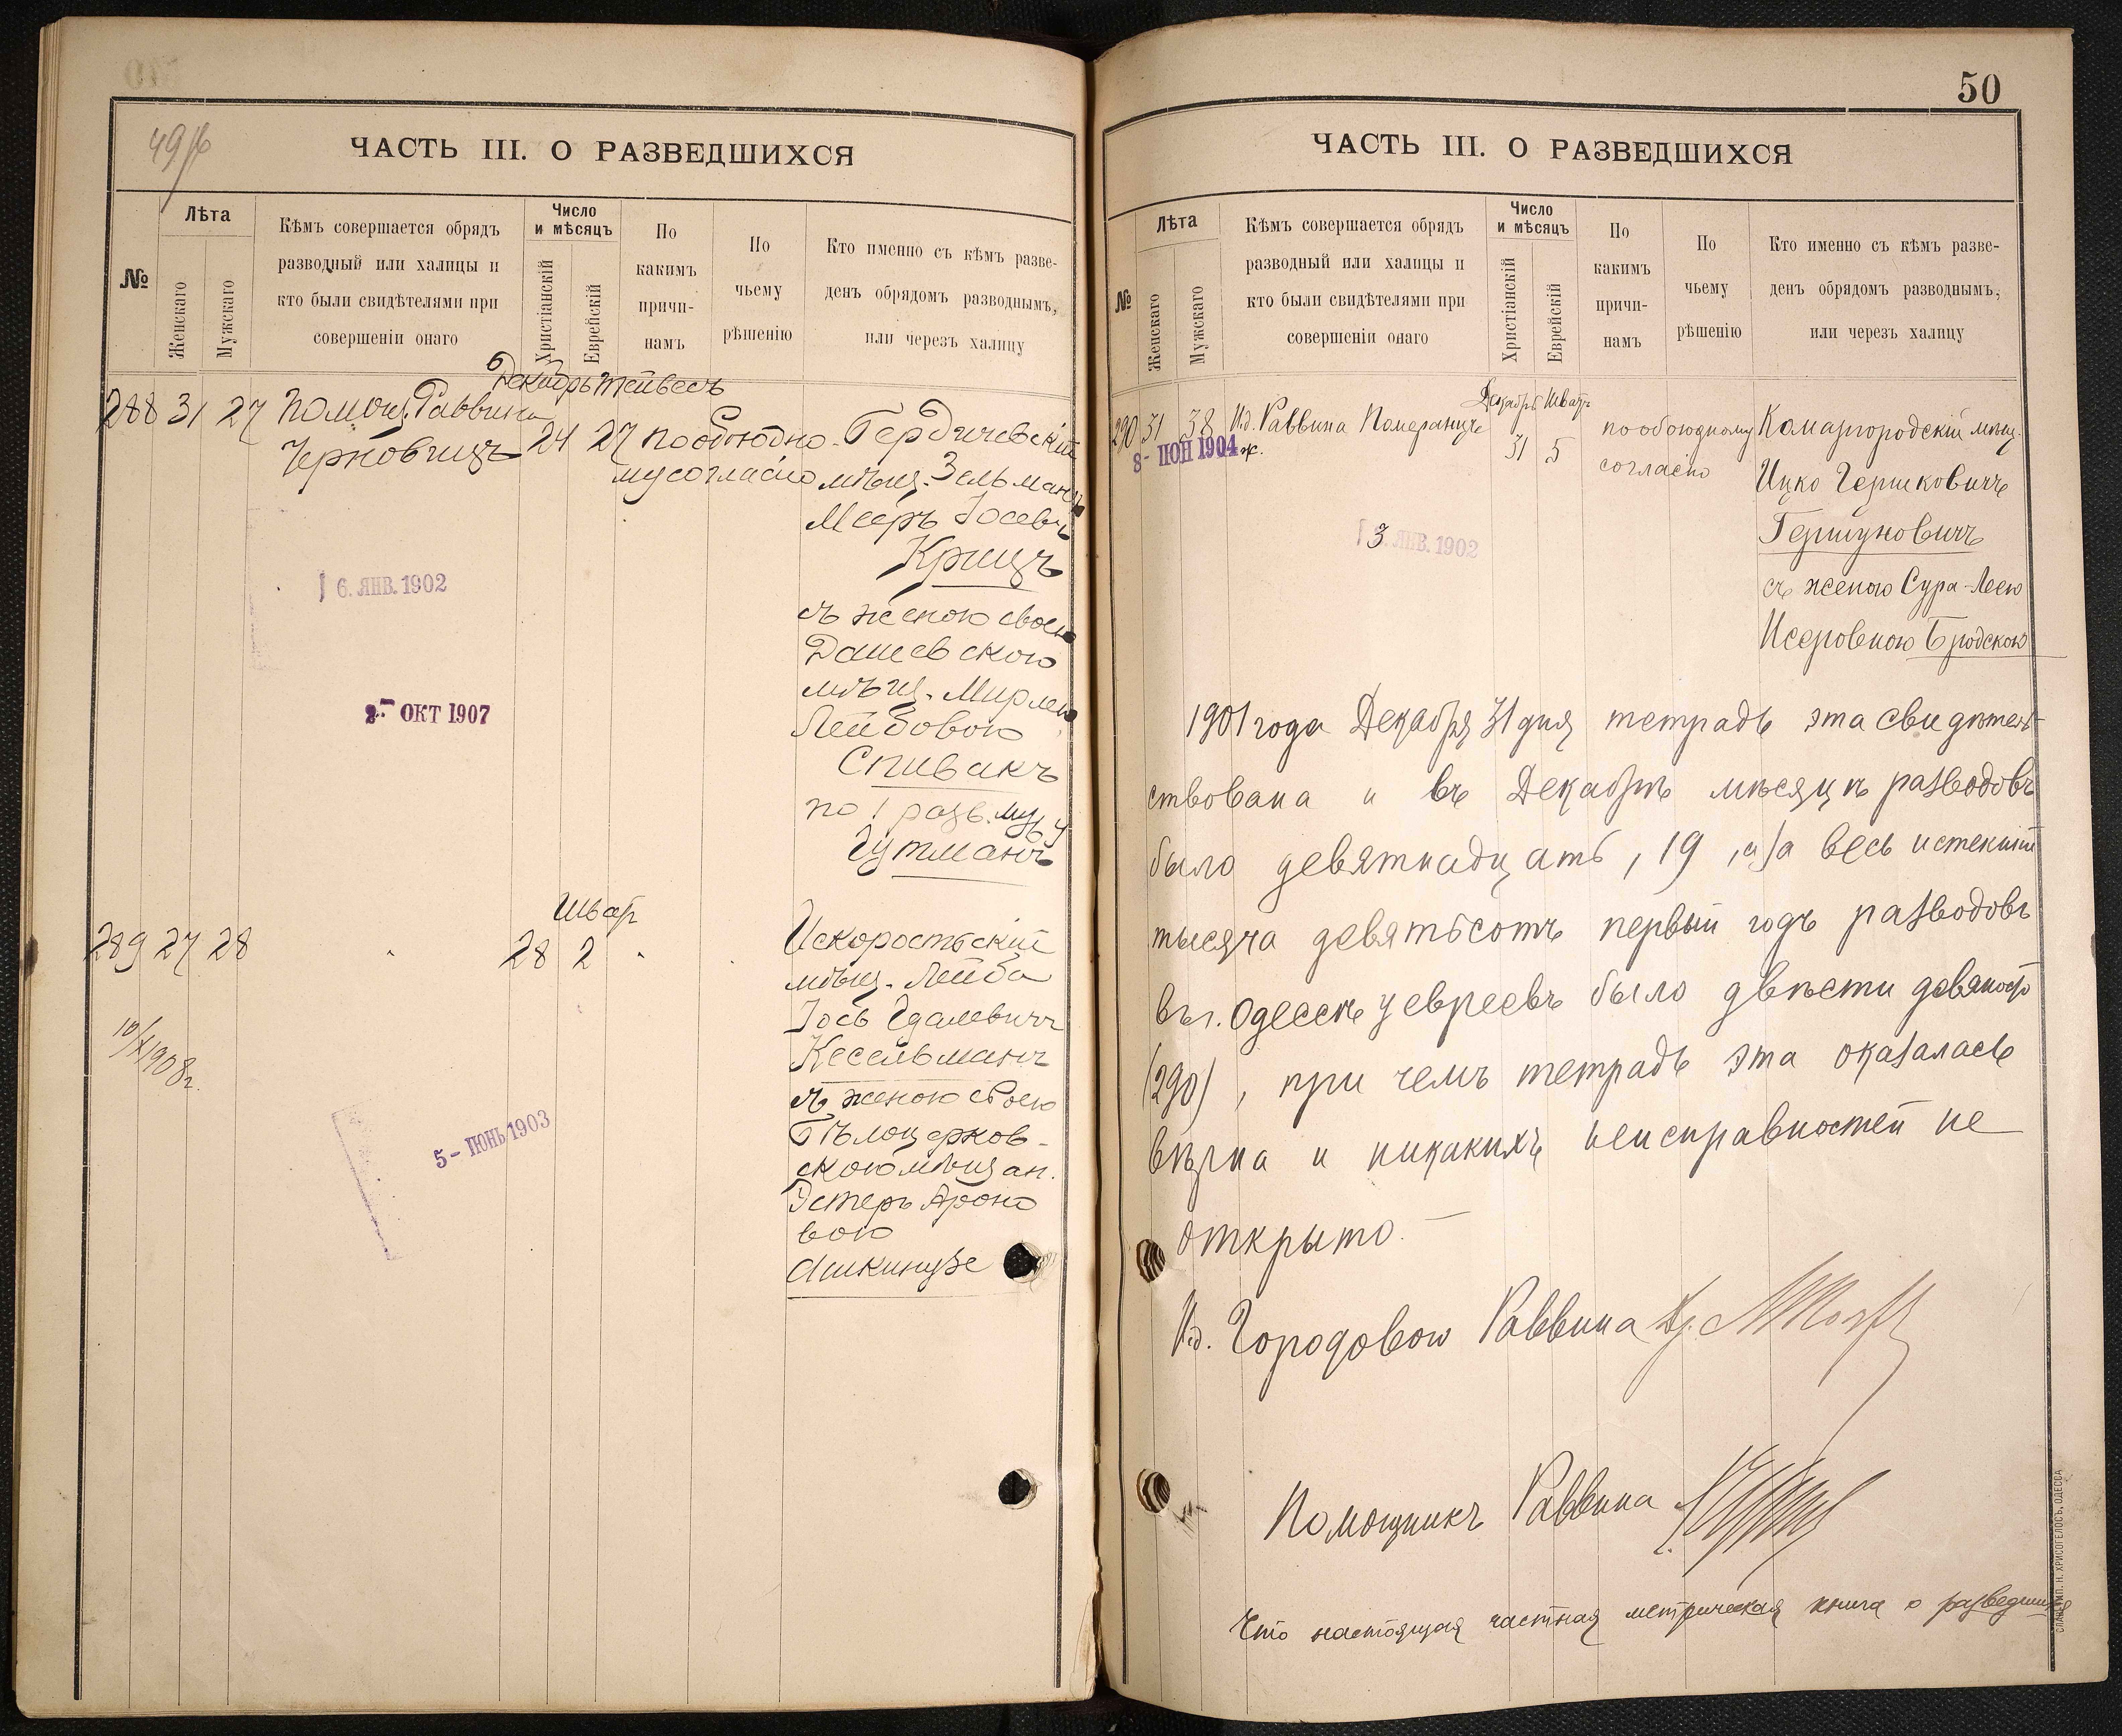 49/б
ЧАСТЬ III. О РАЗВЕДШИХСЯ
№
Лѣта
Женскаго
Мужскаго
Кѣмъ совершается обрядъ
разводный или халицы и
кто были свидѣтелями при
совершеніи онаго
Число
и мѣсяцъ
Христіанскій
Еврейскій
По
какимъ
причи-
намъ
По
чьему
рѣшенію
Кто именно съ кѣмъ разве-
денъ обрядомъ разводнымъ,
или черезъ халицу
Декабрь Тейвесъ
288 31 27 Помощ. Раввина
Черновицъ 24 27 по обоюдно- Бердичевскій
му согласію мѣщ. Зельманъ
Мееръ Іосевъ
Крицъ
6. ЯНВ. 1902
съ женою своею
Дашевскою
мѣщ. Мирлею
2- ОКТ 1907
Лейбовою
Спивакъ
по 1 разв. мужу
Гутманъ
Шват
289 27 28 28 2 Искоростьскій
мѣщ. Лейба
Іось Гдалевичъ
Кесельманъ
10/X 1908 г.
съ женою своею
Бѣлоцерков-
скою мѣщан.
5- ІЮНЬ 1903
Эстеръ Ароно
вою
Ашкинузе
50
ЧАСТЬ III. О РАЗВЕДШИХСЯ
№
Лѣта
Женскаго
Мужскаго
Кѣмъ совершается обрядъ
разводный или халицы и
кто были свидѣтелями при
совершеніи онаго
Число
и мѣсяцъ
Христіанскій
Еврейскій
По
какимъ
причи-
намъ
По
чьему
рѣшенію
Кто именно съ кѣмъ разве-
денъ обрядомъ разводнымъ,
или черезъ халицу
Декабрь Шватъ
290 31 38 И.д. Раввина Померанцъ 31 5 по обоюдному Комаргородскій мѣщ.
8- ІЮН 1904 ж.
согласію
Ицко Гершковичъ
Гершуновичъ
3. ЯНВ. 1902
съ женою Сура-Леею
Исеровною Бродскою
1901 года Декабря 31 дня тетрадь эта свидѣтель-
ствована и въ Декабрѣ мѣсяцѣ разводовъ
было девятнадцать, 19, а за весь истекшій
тысяча девятьсотъ первый годъ разводовъ
въ г. Одессѣ у евреевъ было двѣсти девяносто
(290), при чемъ тетрадь эта оказалась
вѣрна и никакихъ неисправностей не
открыто. —
И.д. Городовою Раввина Др.
Помощникъ Раввина
Что настоящая частная метрическая книга о разведшихся
СЛАВ. ТИП. Н. ХРИСОГЕЛОСЪ, ОДЕССА